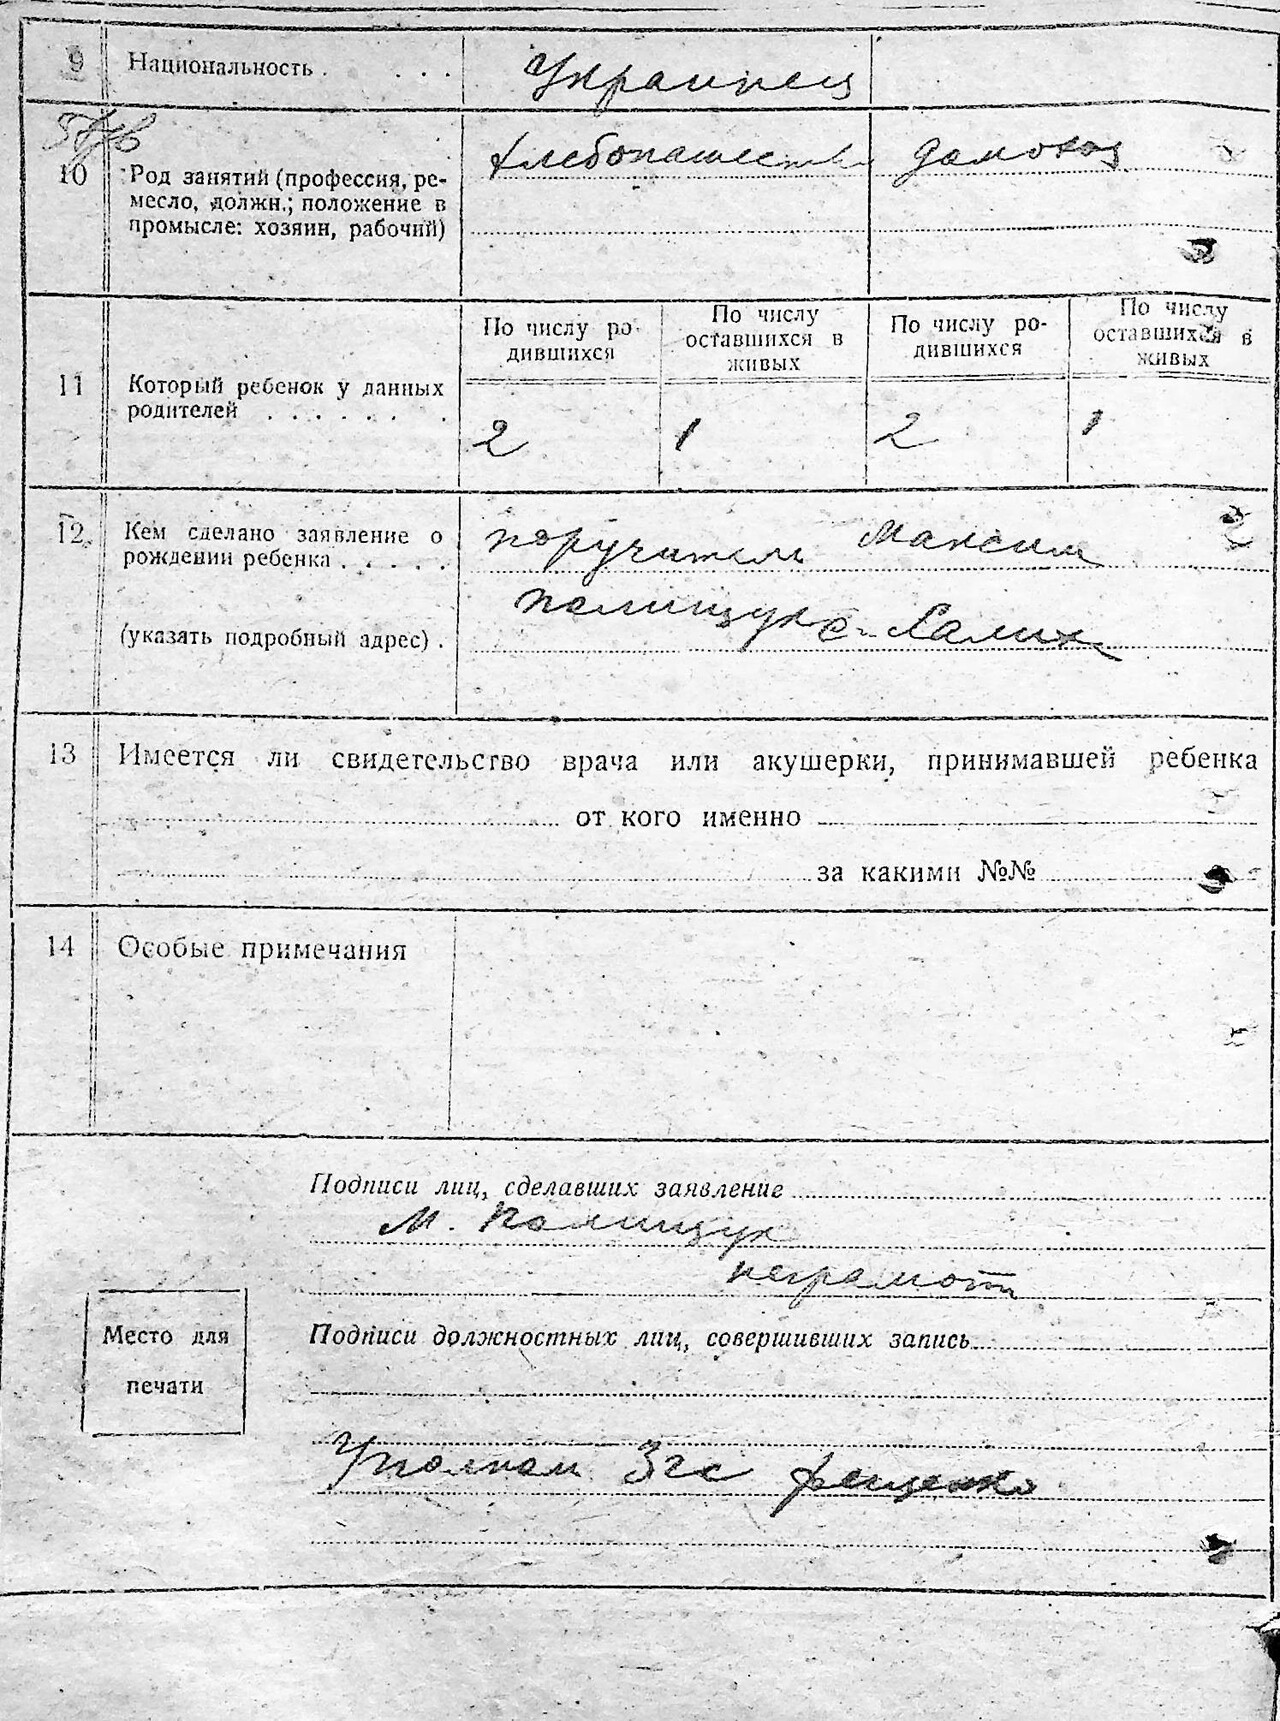 9 Национальность . . . . Украинец
10 Род занятий (профессия, ре-
месло, должн.; положение в
промысле: хозяин, рабочий)
хлебопашеств домохоз
11 Который ребенок у данных
родителей . . . . . . .
По числу ро-
дившихся
По числу
оставшихся в
живых
По числу ро-
дившихся
По числу
оставшихся в
живых
2 1 2 1
12. Кем сделано заявление о
рождении ребенка . . . . .
(указать подробный адрес) .
поручитель Максим
Полищук с.
13 Имеется ли свидетельство врача или акушерки, принимавшей ребенка
от кого именно
за какими №№
14 Особые примечания
Подписи лиц, сделавших заявление
М. Полищук
неграмотн
Место для
печати
Подписи должностных лиц, совершивших запись
Уполном Загс